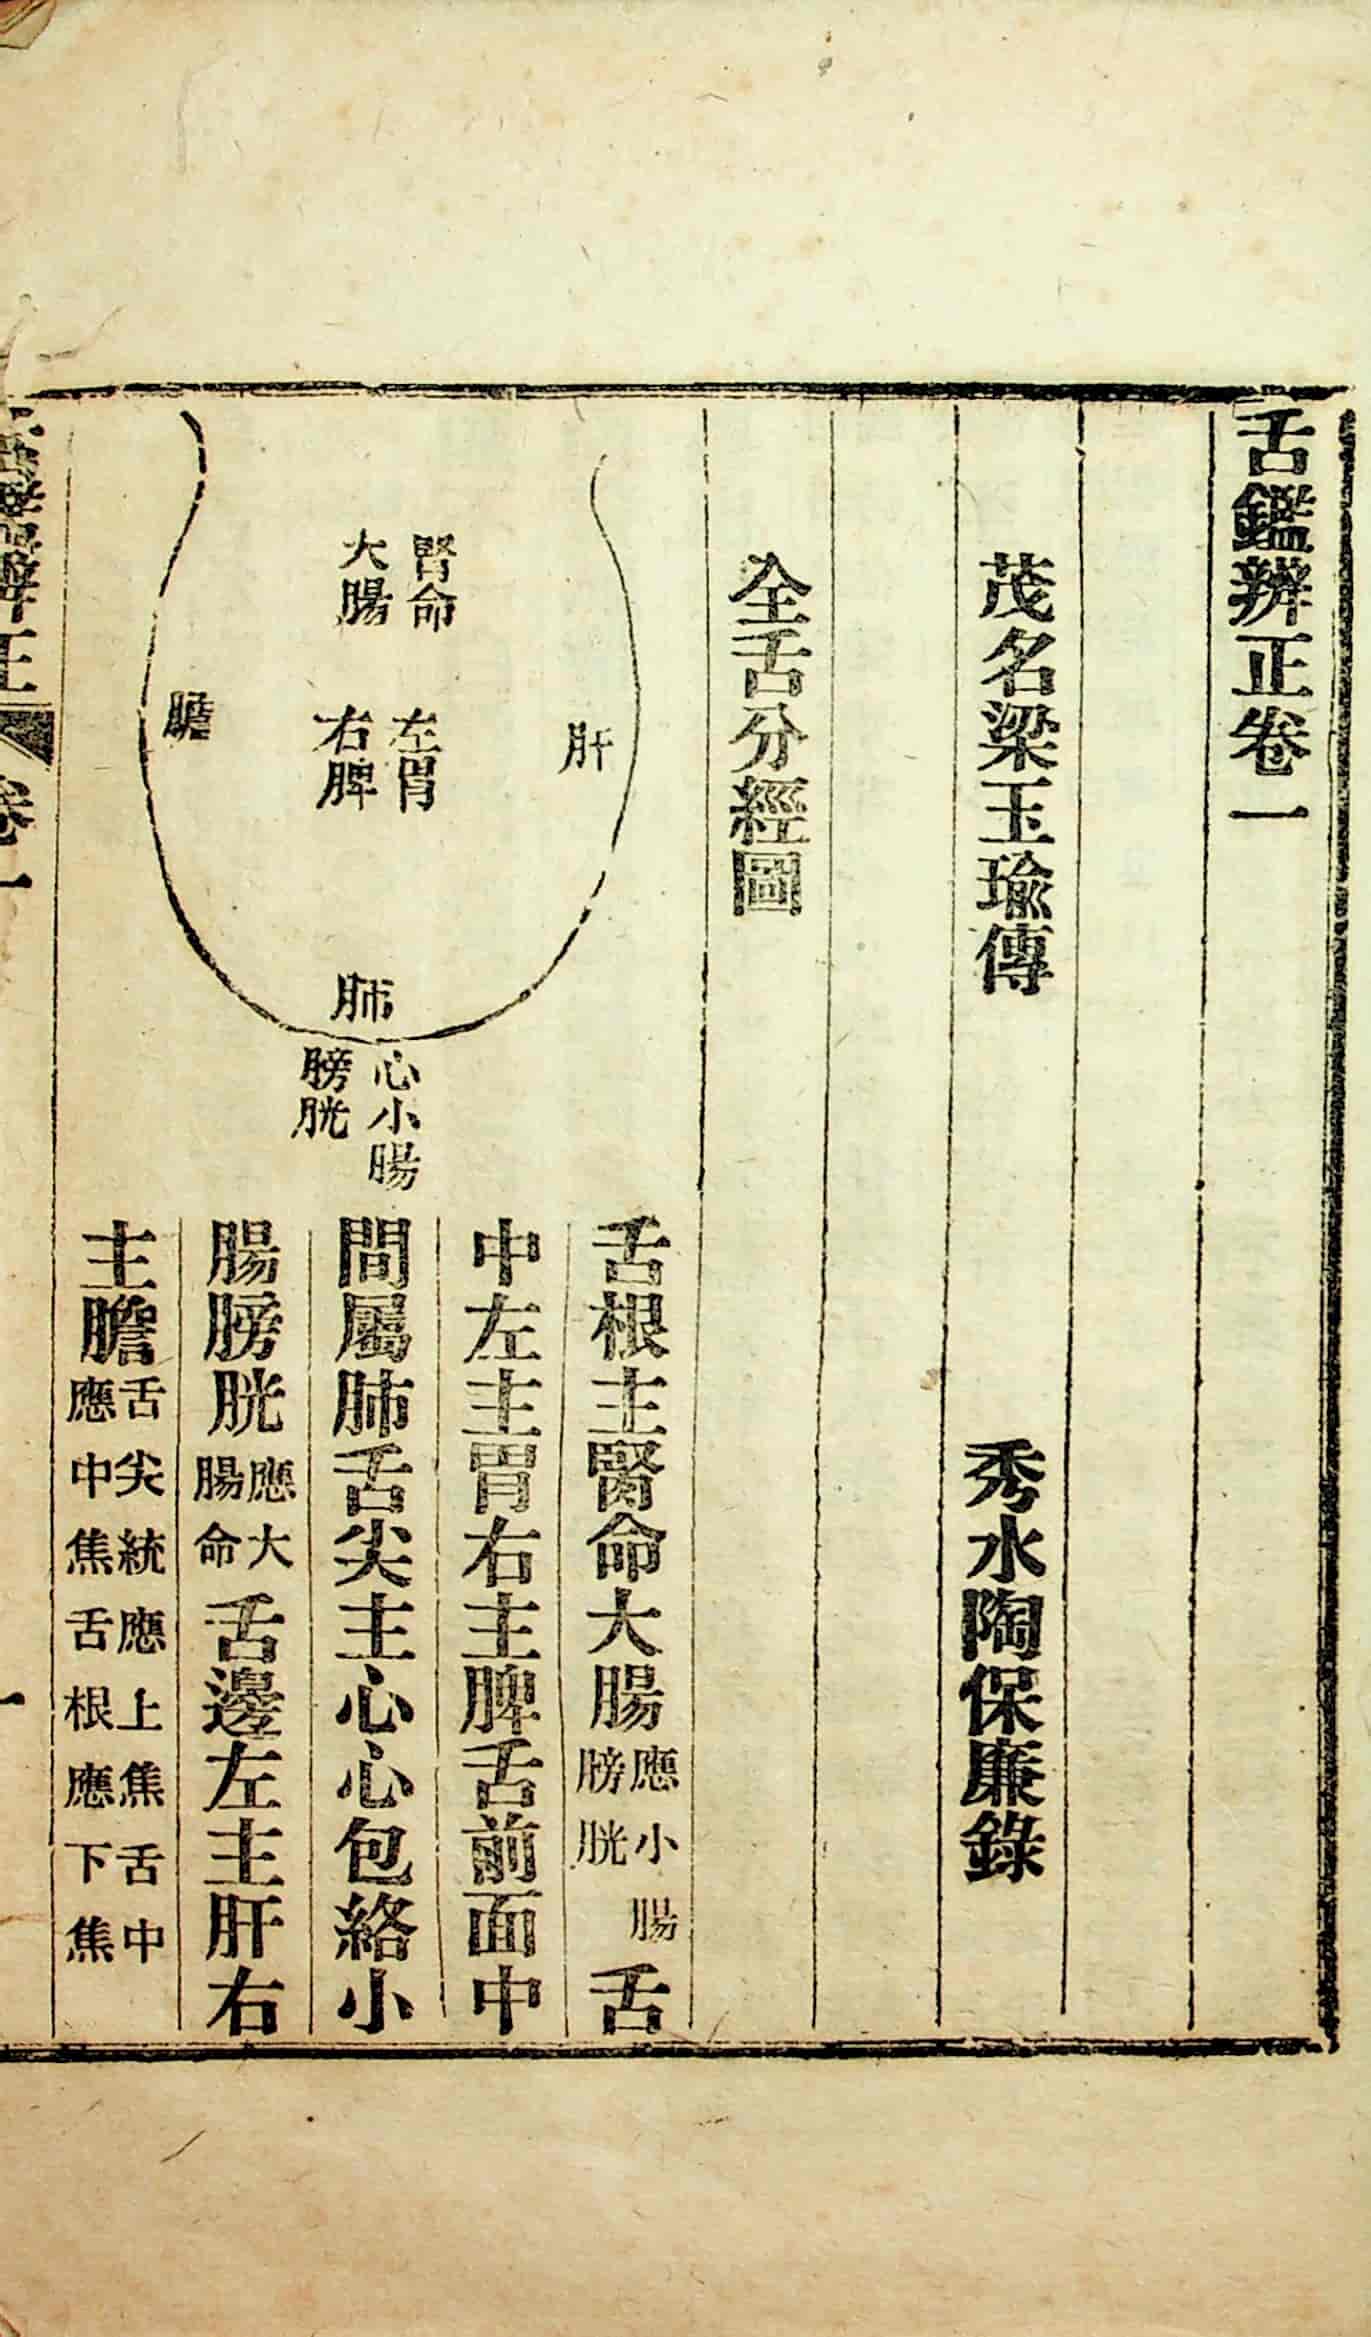 舌鑑辨正卷一
茂名梁玉瑜傳
秀水陶保廉錄
全舌分經圖
肝
腎命
大腸
左胃
右脾
膽
肺
心小腸
膀胱
舌根主腎命大腸應小腸膀胱舌
中左主胃右主脾舌前面中
間屬肺舌尖主心心包絡小
腸膀胱應大腸命舌邊左主肝右
主膽舌尖統應上焦舌中應中焦舌根應下焦
卷一
一